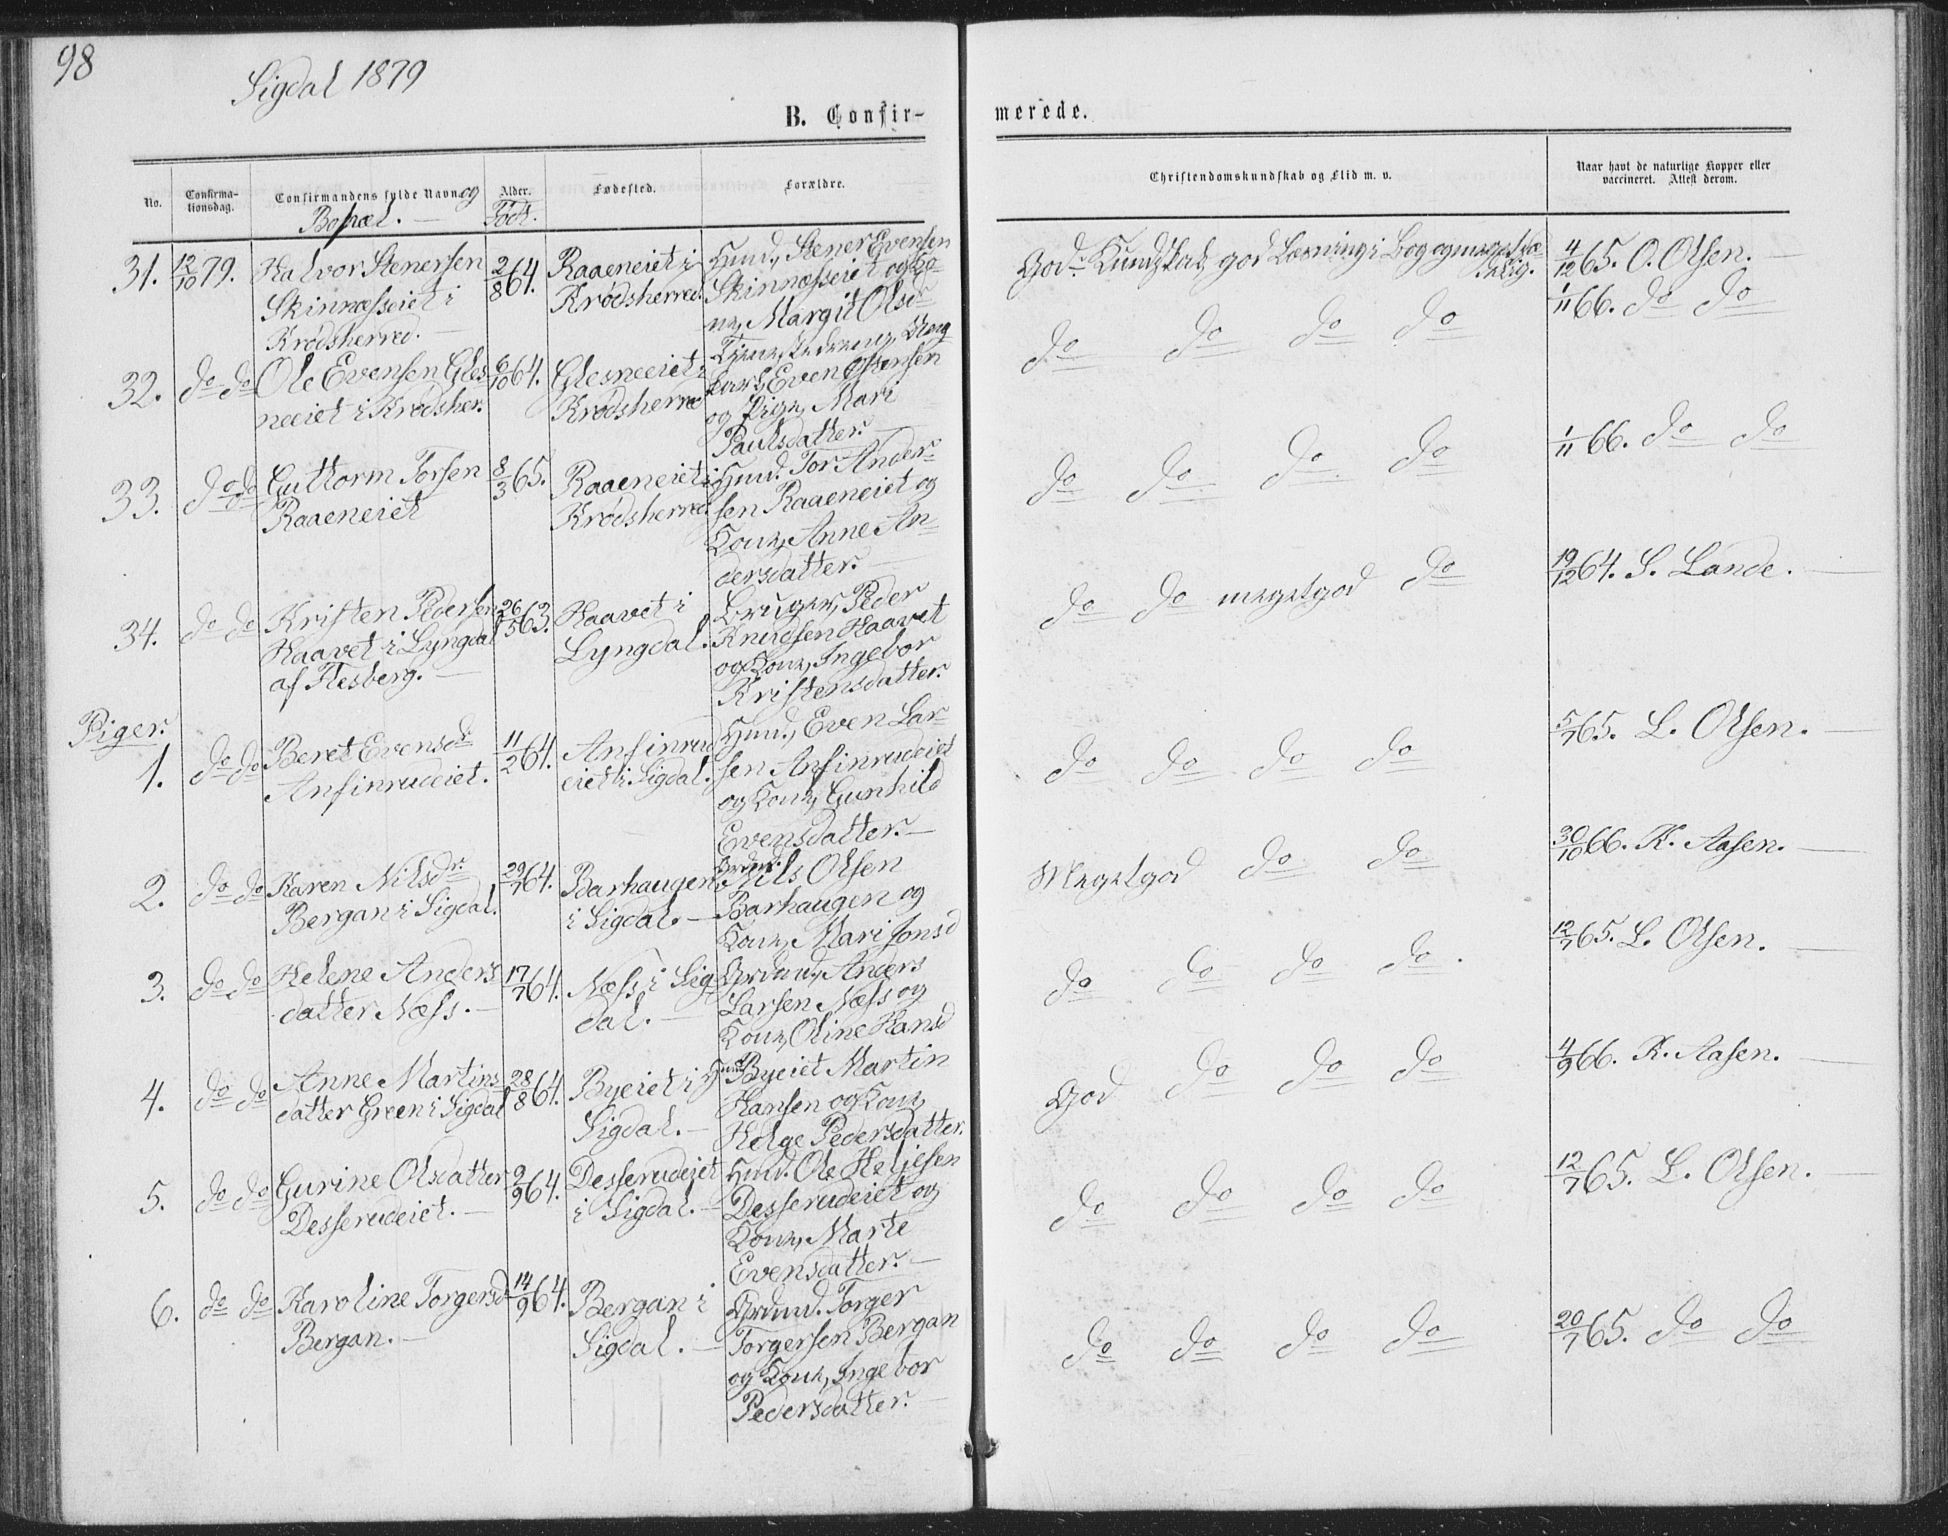 98
Sigdal 1879
B. Confir-
merede.
No.
Confirma-
tionsdag.
Confirmandens fulde Navn og
Bopæl. —
Alder.
Født.
Fødested.
Forældre.
Christendomskundskab og Flid m. v.
Naar havt de naturlige Kopper eller
vaccineret. Attest derom.
31. 12/10 79. Halvor Stenersen 2/8 64. Raaeneiet i Huusm. Stener Evensen
Skinnæsseiet i Krødsherred. Skinnæsseiet og Ko-
Krødsherred. — ne, Margit Olsdr
God Kundskab, god Læsning i Bog og meget sæ-
delig.
4/12 65. O. Olsen. —
32. do do Ole Evensen Gles- 6/10 64. Glesneeiet i
neeiet i Krødsher. Krødsherre
Even
og Pige, Mari
Paulsdatter. —
do do do do
1/11 66. do do
33. do do Guttorm Torsen 8/3 65. Raaeneiet i Huusm. Tor Ander-
Raaeneiet Krødsherred. sen Raaeneiet og
Kone, Anne An-
dersdatter. —
do do do do
1/11 66. do do
34. do do Kristen Pedersen 26/5 63. Haavet i Bruger, Peder
Haavet i Lyngdal Lyngdal. Knudsen Haavet
af Flesberg. — og Kone, Ingebor
Kristensdatter.
do do megetgod do
19/12 64. S. Lande. —
Piger.
1. do do Beret Evensdr 11/2 64. Anfinrud Huusm., Even Lar-
Anfinrudeiet. eiet i Sigdal. sen Anfinrudeiet
og Kone, Gunhild
Evensdatter. —
do do do do
5/7 65. L. Olsen. —
2. do do Karen Nilsdr. 29/7 64. Barhaugen Nils Olsen
Bergan i Sigdal. i Sigdal. — Barhaugen og
Kone, Mari Jonsd
Megetgod do do
30/10 66. K. Aasen. —
3. do do Helene Anders 17/7 64. Næss i Sig- Grdmd., Anders
datter Næss. — dal. — Larsen Næss og
Kone, Oline Hansd
do do do do.
12/7 65. L. Olsen. —
4. do do Anne Martins 28/8 64. Byeiet i Huusm. Byeiet Martin
datter Green i Sigdal Sigdal. — Hansen og Kone,
Helge Pedersdatter.
God do do do
4/9 66. K. Aasen. —
5. do do Gurine Olsdatter 9/9 64. Desserudeiet Huusm. Ole Heljesen
Desserudeiet. — i Sigdal. — Desserudeiet og
Kone, Marte
Evensdatter. —
do do do do
12/7 65. L. Olsen. —
6. do do Karoline Torgersd 14/9 64. Bergan i Grdmd. Torger
Bergan. — Sigdal. — Torgersen Bergan
og Kone, Ingebor
Pedersdatter. —
do do do do
20/7 65. do do